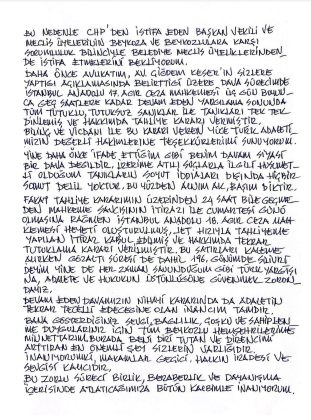 BU NEDENLE CHP'DEN İSTİFA EDEN BAŞKAN VEKİLİ VE
MECLİS ÜYELERİNİN BEYKOZA VE BEYKOZLULARA KARŞI
SORUMLULUK BİLİNCİYLE BELEDİYE MECLİS ÜYELİKLERİNDEN
DE İSTİFA ETMELERİNİ BEKLİYORUM.
DAHA ÖNCE AVUKATIM, AV. ÇİĞDEM KESER'İN SİZLERE
YAPTIĞI AÇIKLAMASINDA BELİRTTİĞİ ÜZERE DAVA SÜRECİMDE
İSTANBUL ANADOLU 17. AĞIR CEZA MAHKEMESİ ÜÇ GÜN BOYUN-
CA GEÇ SAATLERE KADAR DEVAM EDEN YARGILAMA SONUNDA
TÜM TUTUKLU, TUTUKSUZ SANIKLAR İLE TANIKLARI TEK TEK
DİNLEMİŞ VE HAKKIMDA TAHLİYE KARARI VERMİŞTİR.
BİLİNÇ VE VİCDANI İLE BU KARARI VEREN YÜCE TÜRK ADALETİ-
MİZİN DEĞERLİ HAKİMLERİNE TEŞEKKÜRLERİMİ SUNUYORUM.
YİNE DAHA ÖNCE İFADE ETTİĞİM GİBİ BENİM DAVAM SİYASİ
BİR DAVA DEĞİLDİR. ÜZERİME ATILI SUÇLARLA İLGİLİ HAKSIZ
Lİ OLDUĞUNA TANIKLARIN SOYUT İDDİALARI DIŞINDA HİÇBİR
SOMUT DELİL YOKTUR. BU YÜZDEN ALNIM AK, BAŞIM DİKTİR.
FAKAT TAHLİYE KARARIMIN ÜZERİNDEN 24 SAAT BİLE GEÇME-
DEN MAHKEME SAVCISININ İTİRAZI İLE CUMARTESİ GÜNÜ
OLMASINA RAĞMEN İSTANBUL ANADOLU 18. AĞIR CEZA MAH-
KEMESİ HEYETİ OLUŞTURULMUŞ, JET HIZIYLA TAHLİYEME
YAPILAN İTİRAZ KABUL EDİLMİŞ VE HAKKIMDA TEKRAR
TUTUKLAMA KARARI VERİLMİŞTİR. BU SATIRLARI KALEME
ALIRKEN GÖZALTI SÜRESİ DE DAHİL 196. GÜNÜMDE SİLİVRİ
DEYİM YİNE DE HER ZAMAN SAVUNDUĞUM GİBİ TÜRK YARGISI
NA, ADALETE VE HUKUKUN ÜSTÜNLÜĞÜNE GÜVENMEK ZORUN-
DAYIZ.
DEVAM EDEN DAVAMIZIN NİHAİ KARARINDA DA ADALETİN
TEKRAR TECELLİ EDECEĞİNE OLAN İNANCIM TAMDIR.
BANA GÖSTERDİĞİNİZ SEVGİ, BAĞLILIK, COŞKU VE SAHİPLEN-
ME DUYGULARINIZ İÇİN TÜM BEYKOZLU HEMŞEHRİLERİME
MİNNETTARIM. BURADA, BENİ DİRİ TUTAN VE DİRENCİMİ
ARTTIRAN EN ÖNEMLİ ŞEY SİZLERİN VARLIĞIDIR.
İNANIYORUM Kİ, MAKAMLAR GEÇİCİ, HALKIN İRADESİ VE
SEVGİSİ KALICIDIR.
BU ZORLU SÜRECİ BİRLİK, BERABERLİK VE DAYANIŞMA
İÇERİSİNDE ATLATACAĞIMIZA BÜTÜN KALBİMLE İNANIYORUM.